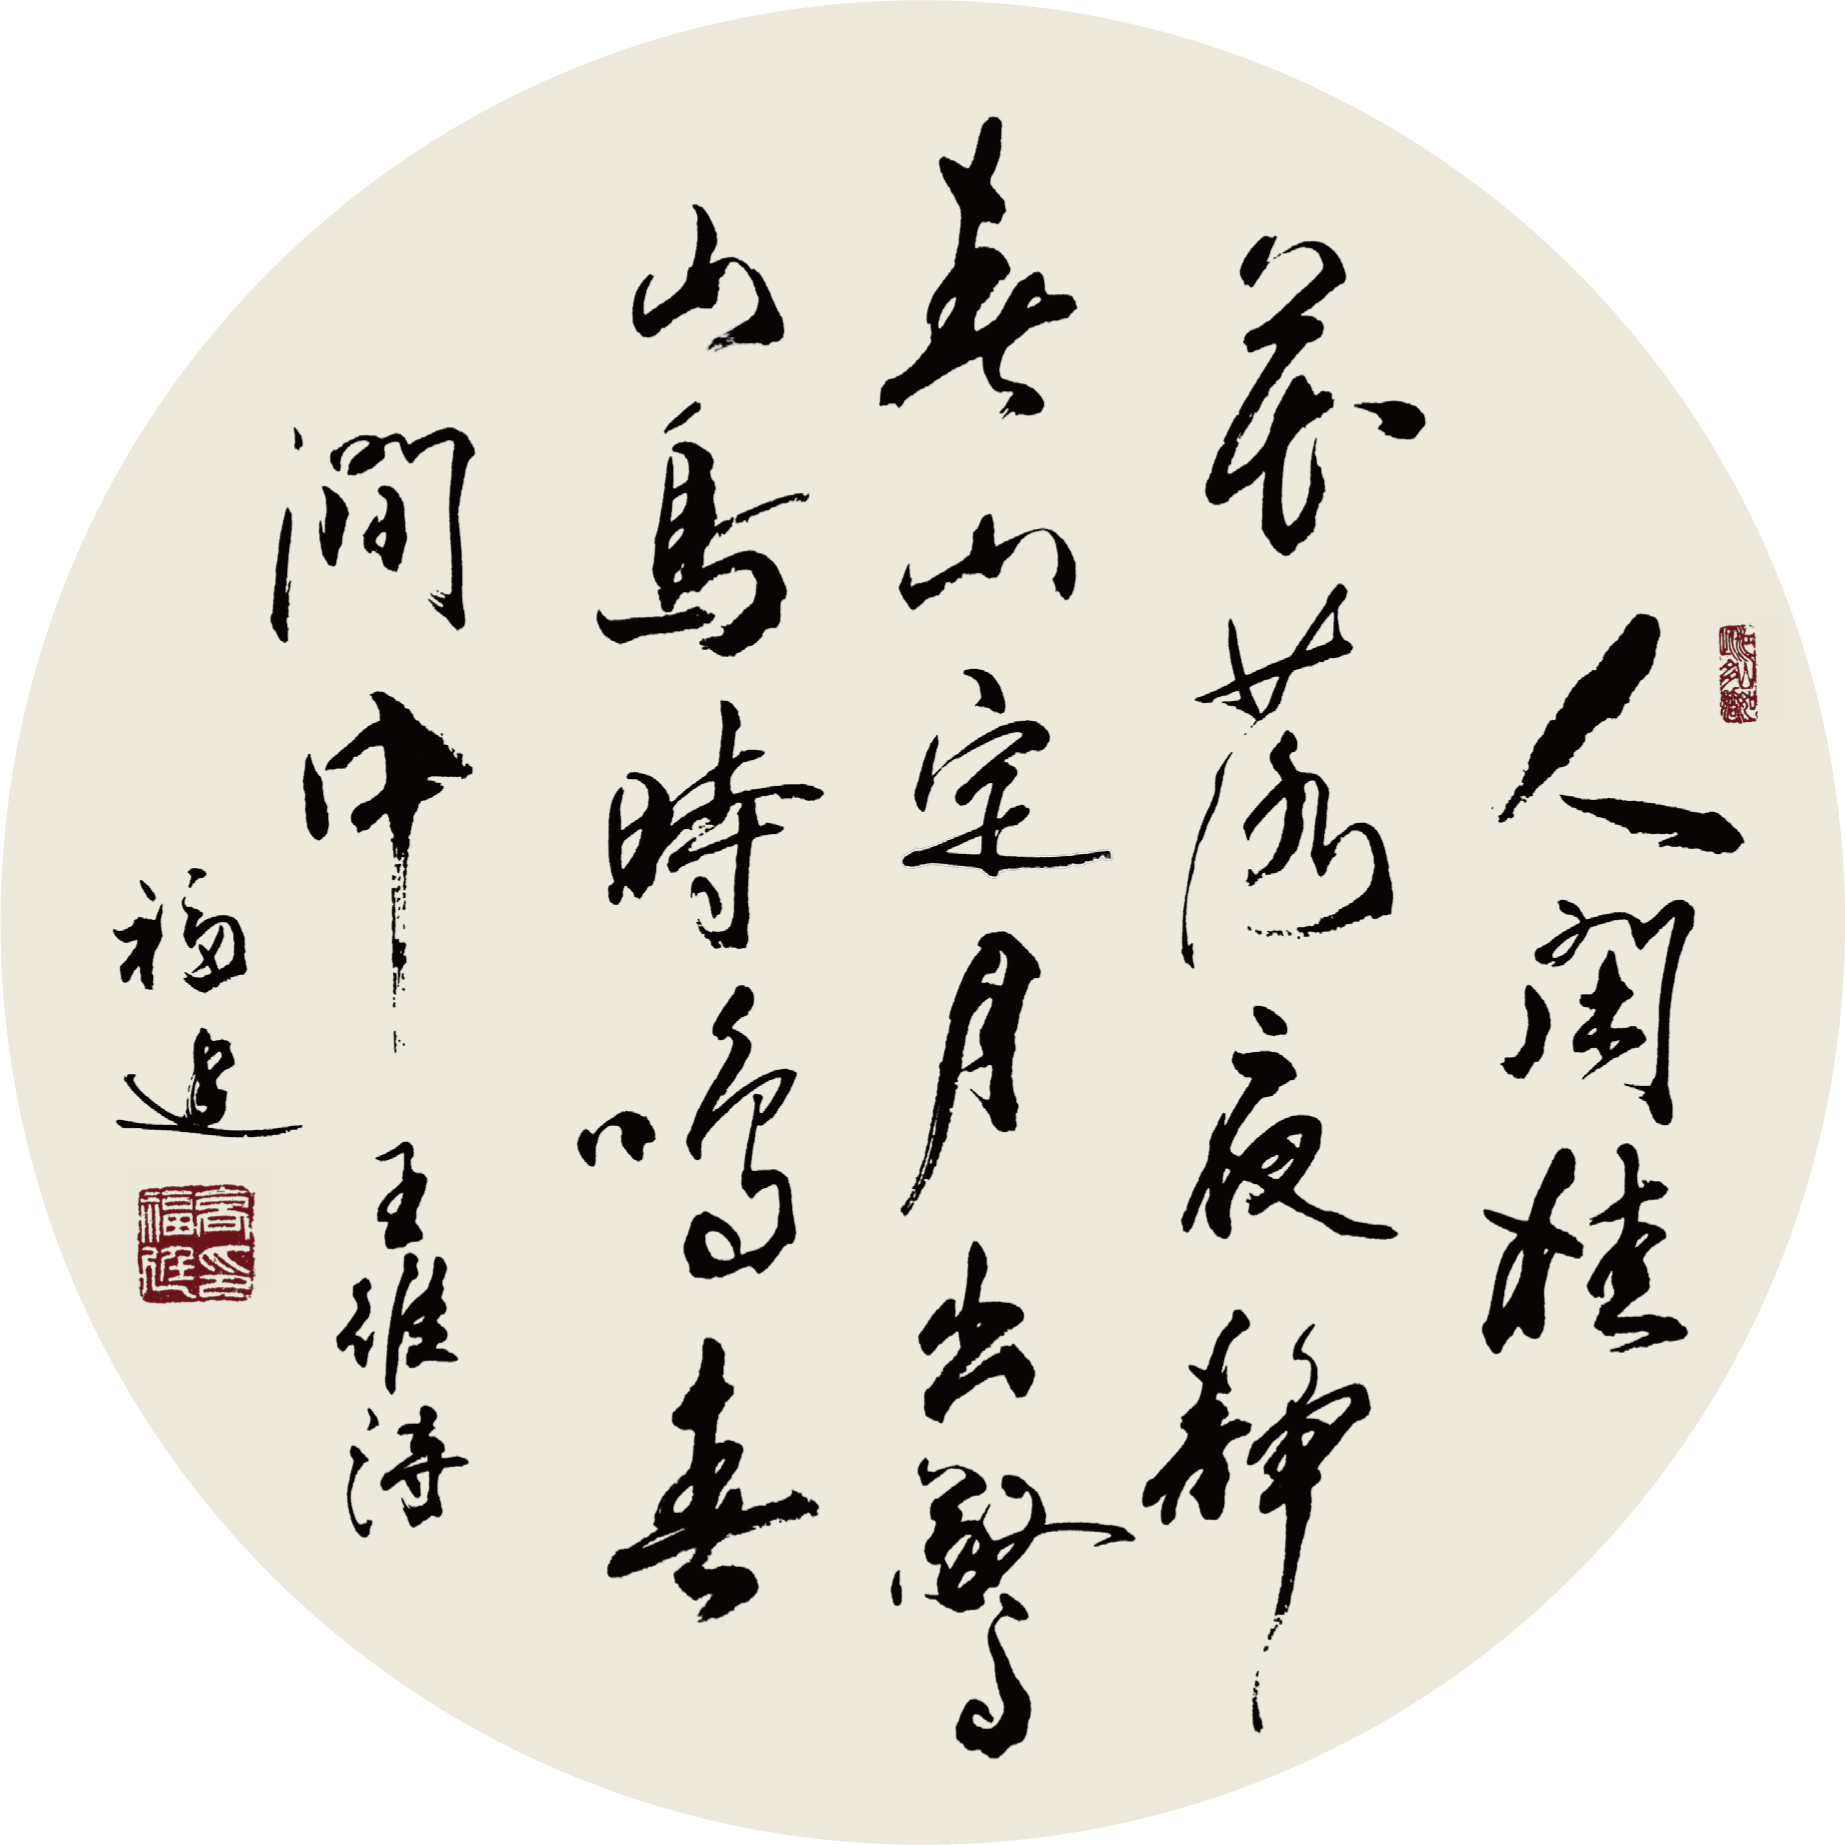 人閑桂
花落夜靜
春山空月出驚
山鳥時鳴春
澗中 王維詩
福進